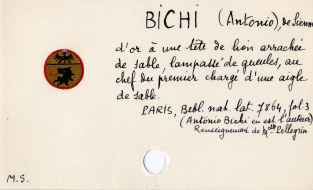 BICHI (Antonio), de Sienne
d'or à une tête de lion arrachée
de sable, lampassé de gueules, au
chef du premier chargé d'une aigle
de sable.
PARIS, Bibl. nat. lat. 7864, fol 3
(Antonio Bichi en est l'auteur)
Renseignement de Mlle Pellegrin
M.S.